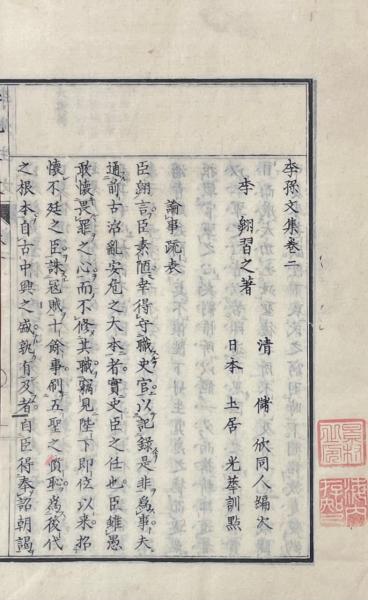 李孫文集卷二
清 儲欣同人編次
李 翱習之著
日本 土居 光華訓點
論事疏表
臣翱言臣素陋幸得守職史官以記錄是非爲事夫
通前古治亂安危之大本者實史臣之任也臣雖愚
敢懷畏罪之心而不修其職竊見陛下即位以來招
懷不廷之臣誅寇賊十餘事刷五聖之憤恥爲後代
之根本自古中興之盛孰有及者自臣得奉詔朝謁